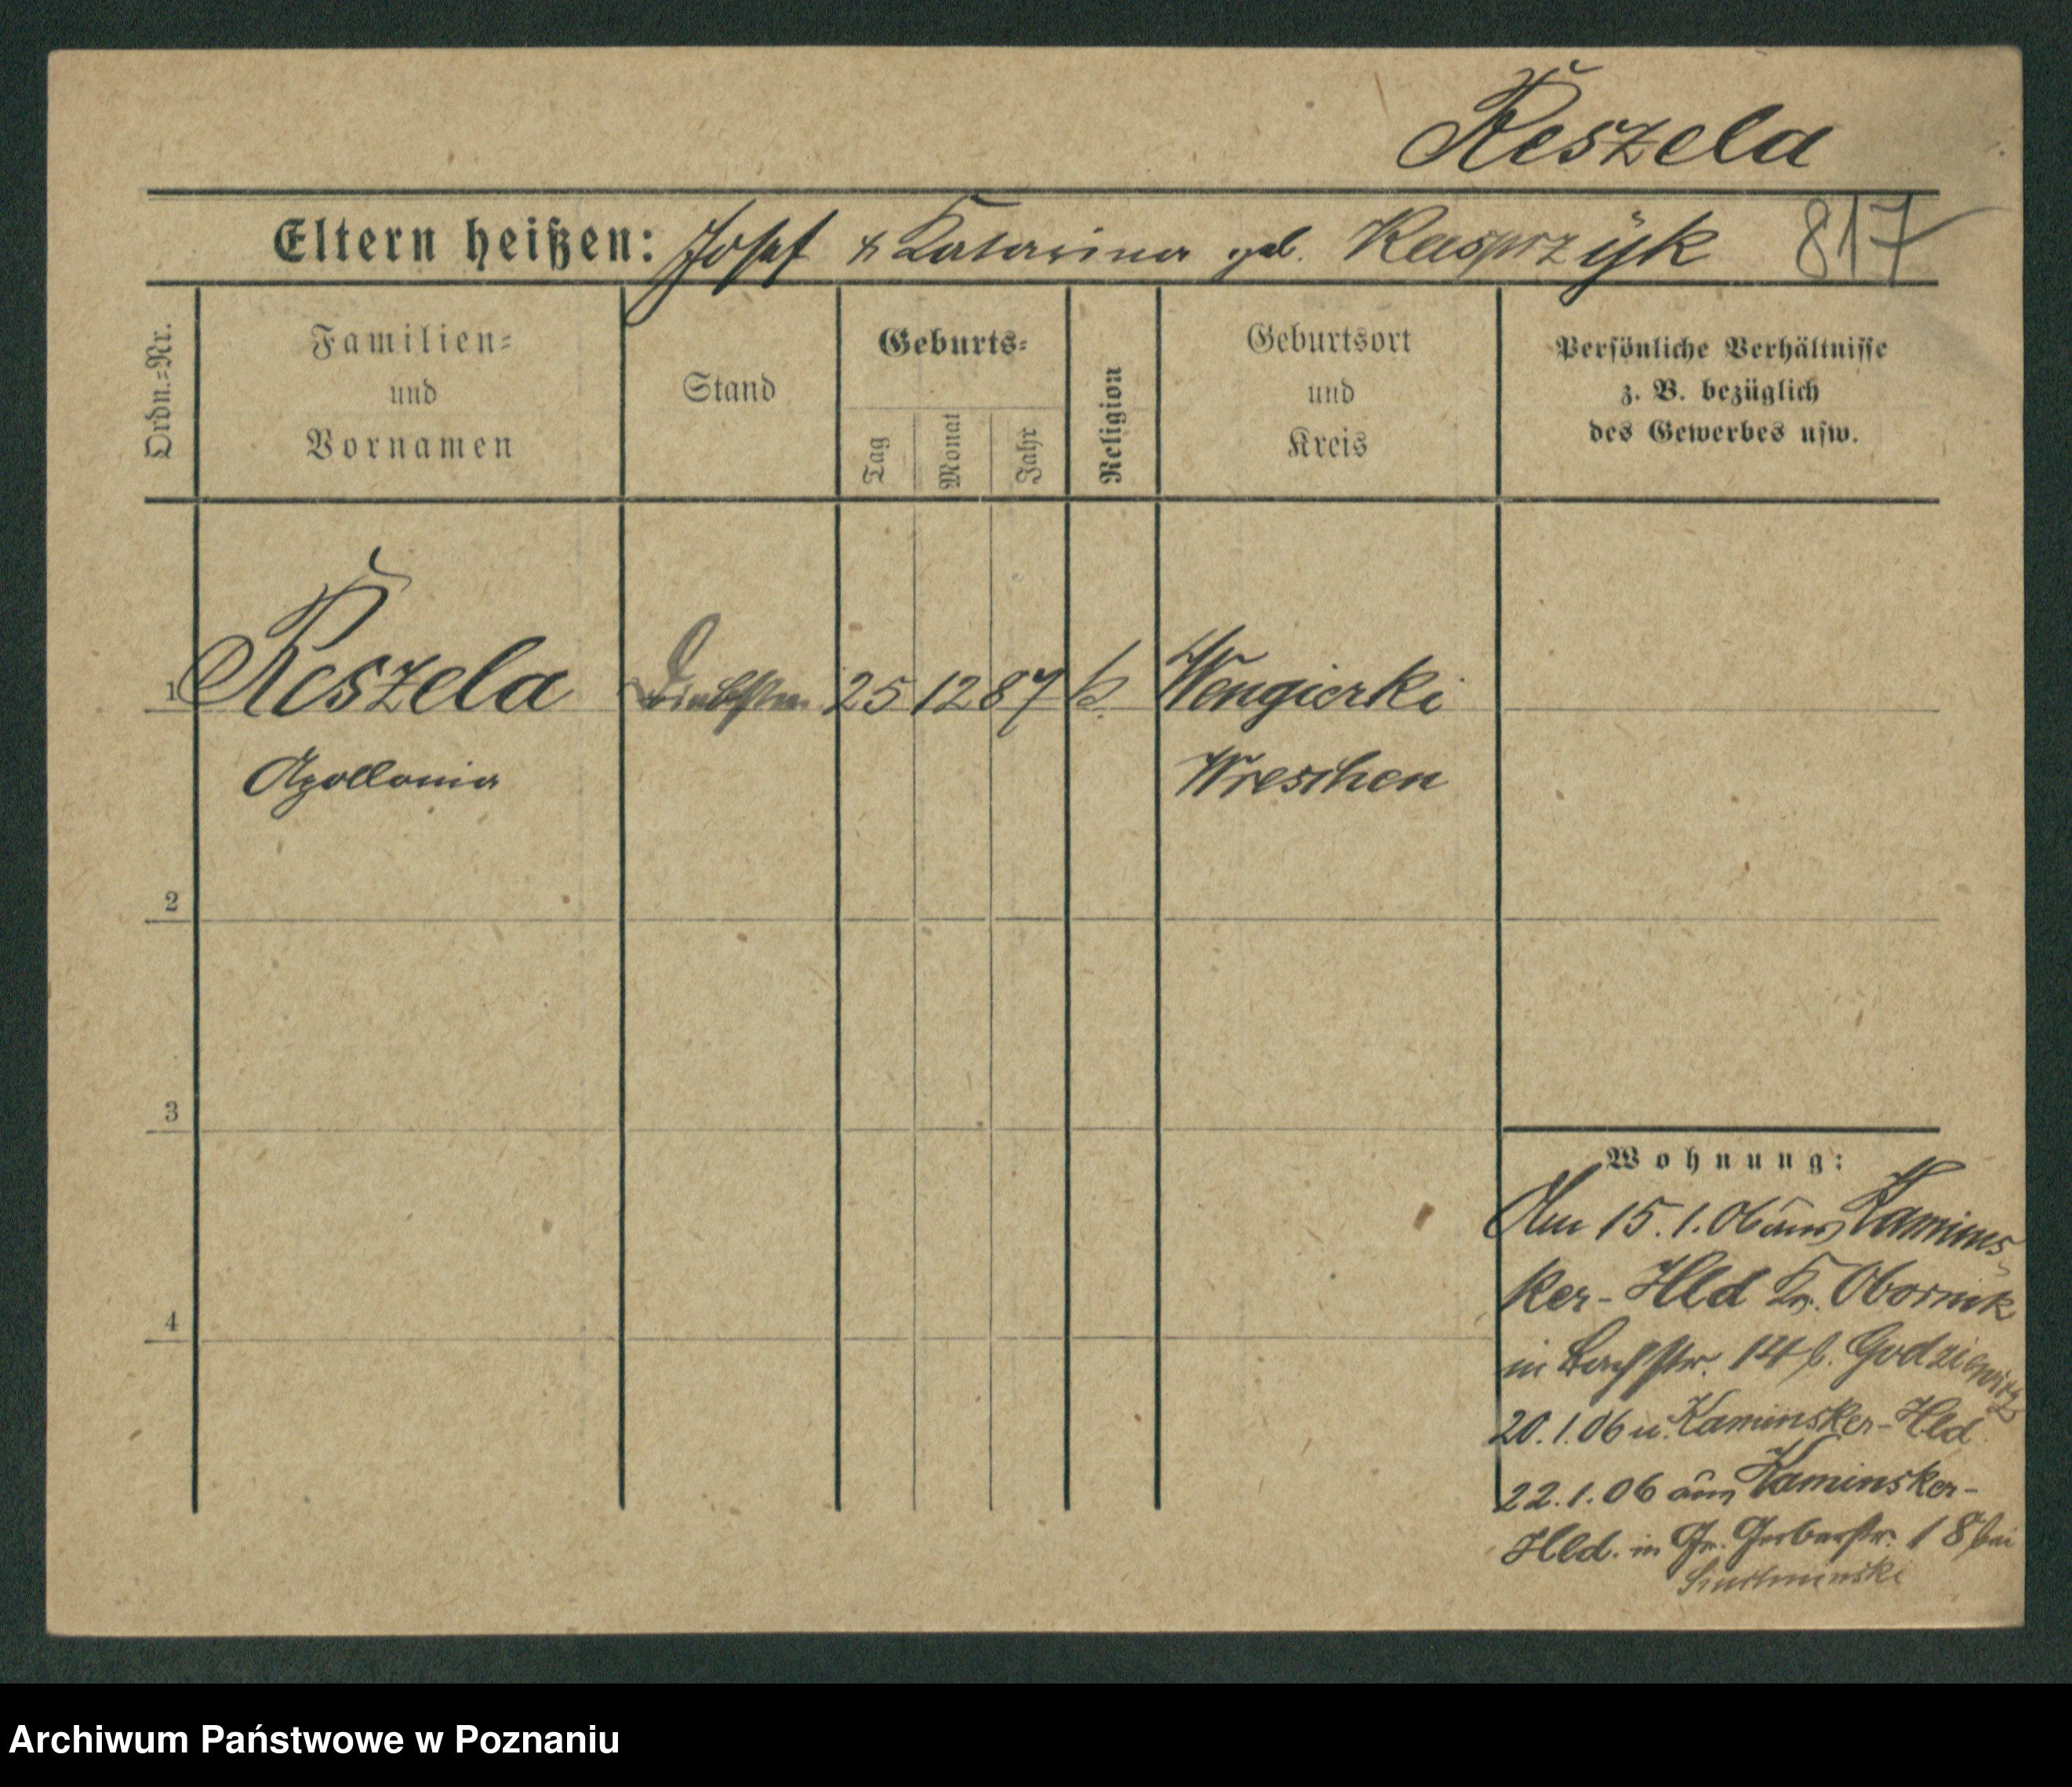 Reszela
Eltern heißen: Josef & Katarina geb. Kasprzÿk 817
Ordn.=Nr.
Familien=
und
Vornamen
Stand
Geburts=
Tag
Monat
Jahr
Religion
Geburtsort
und
Kreis
Persönliche Verhältnisse
z. B. bezüglich
des Gewerbes usw.
1 Reszela 25 12 87 k. Wengierki
Apollonia Wreschen
2
3
4
Wohnung:
Am 15.1.06 aus Kamins
ker-Hld Kr. Obornik
in Bachstr. 14 b. Godziewicz
20.1.06 n. Kaminsker-Hld
22.1.06 aus Kaminsker-
Hld. in Gr. Gerberstr. 18 bei
Archiwum Państwowe w Poznaniu